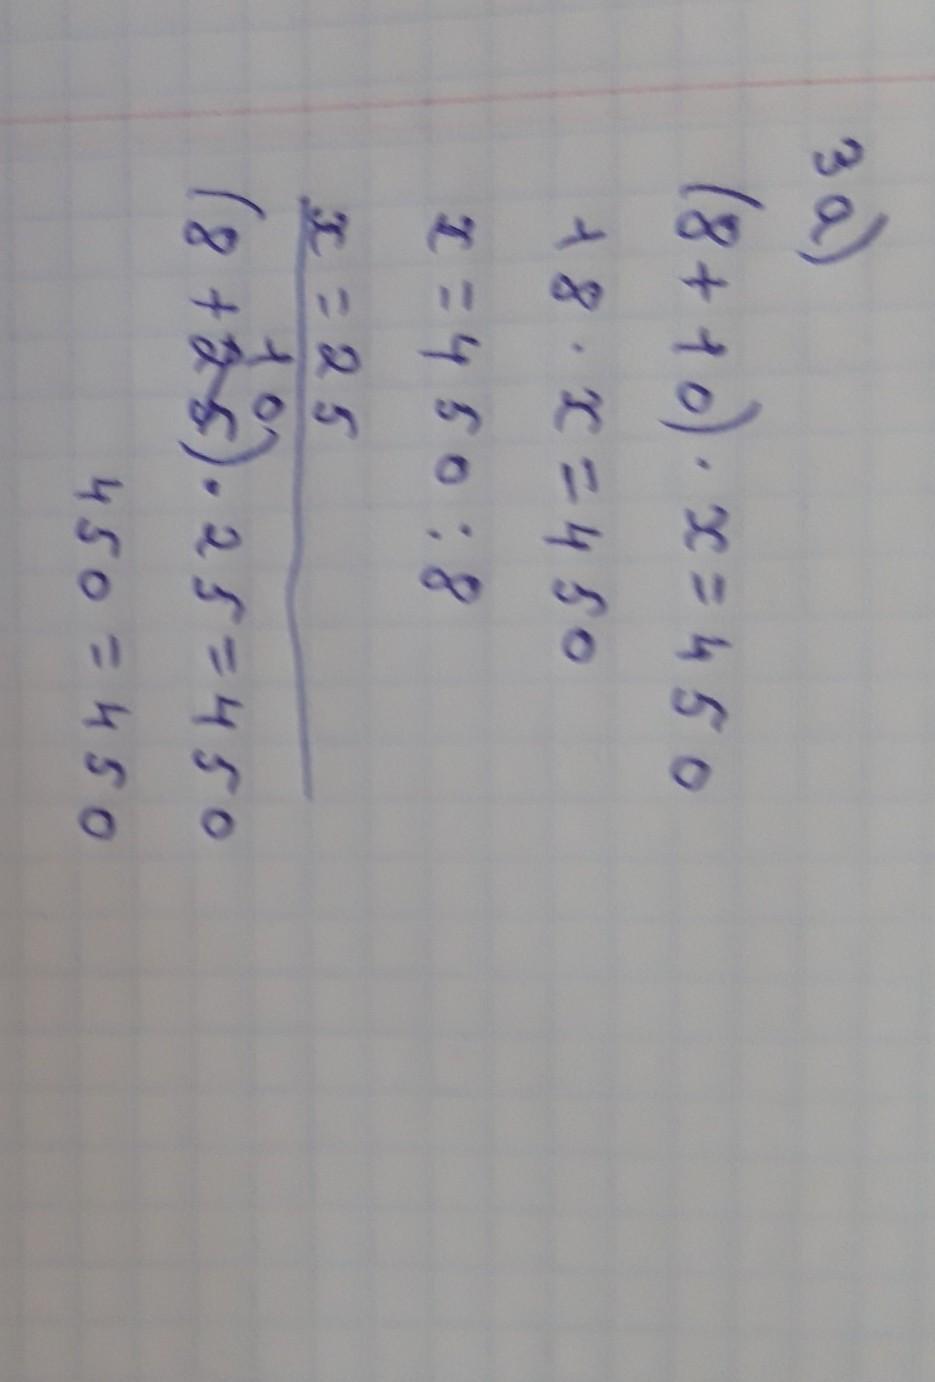 3 a)
(8 + 10) · x = 450
18 · x = 450
x = 450 : 8
x = 25
10
(8 + 25) · 25 = 450
450 = 450